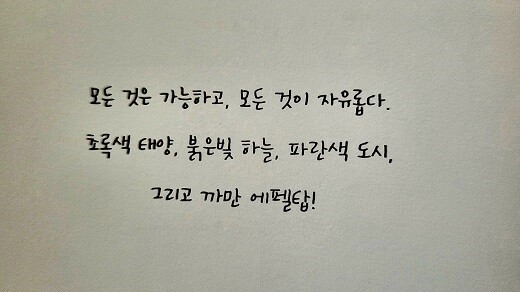 모든 것은 가능하고, 모든 것이 자유롭다.
초록색 태양, 붉은빛 하늘, 파란색 도시,
그리고 까만 에펠탑!